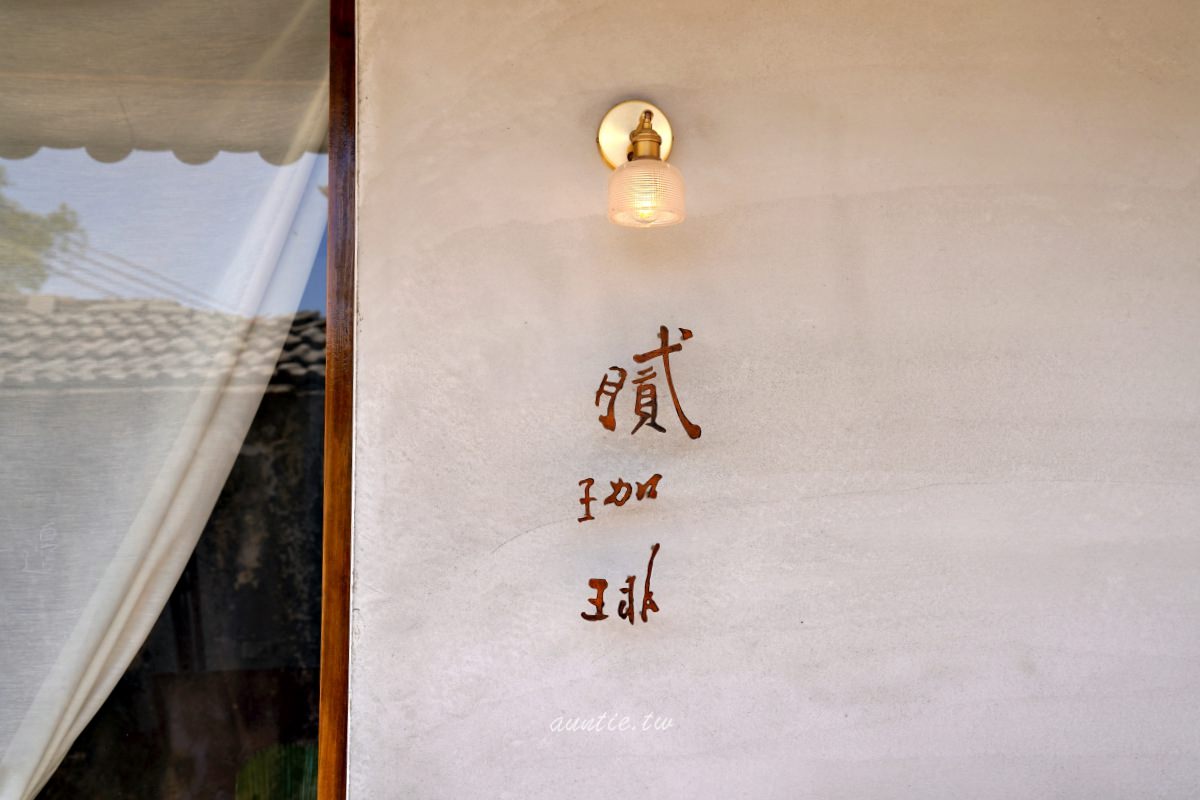 膩珈琲
auntie.tw